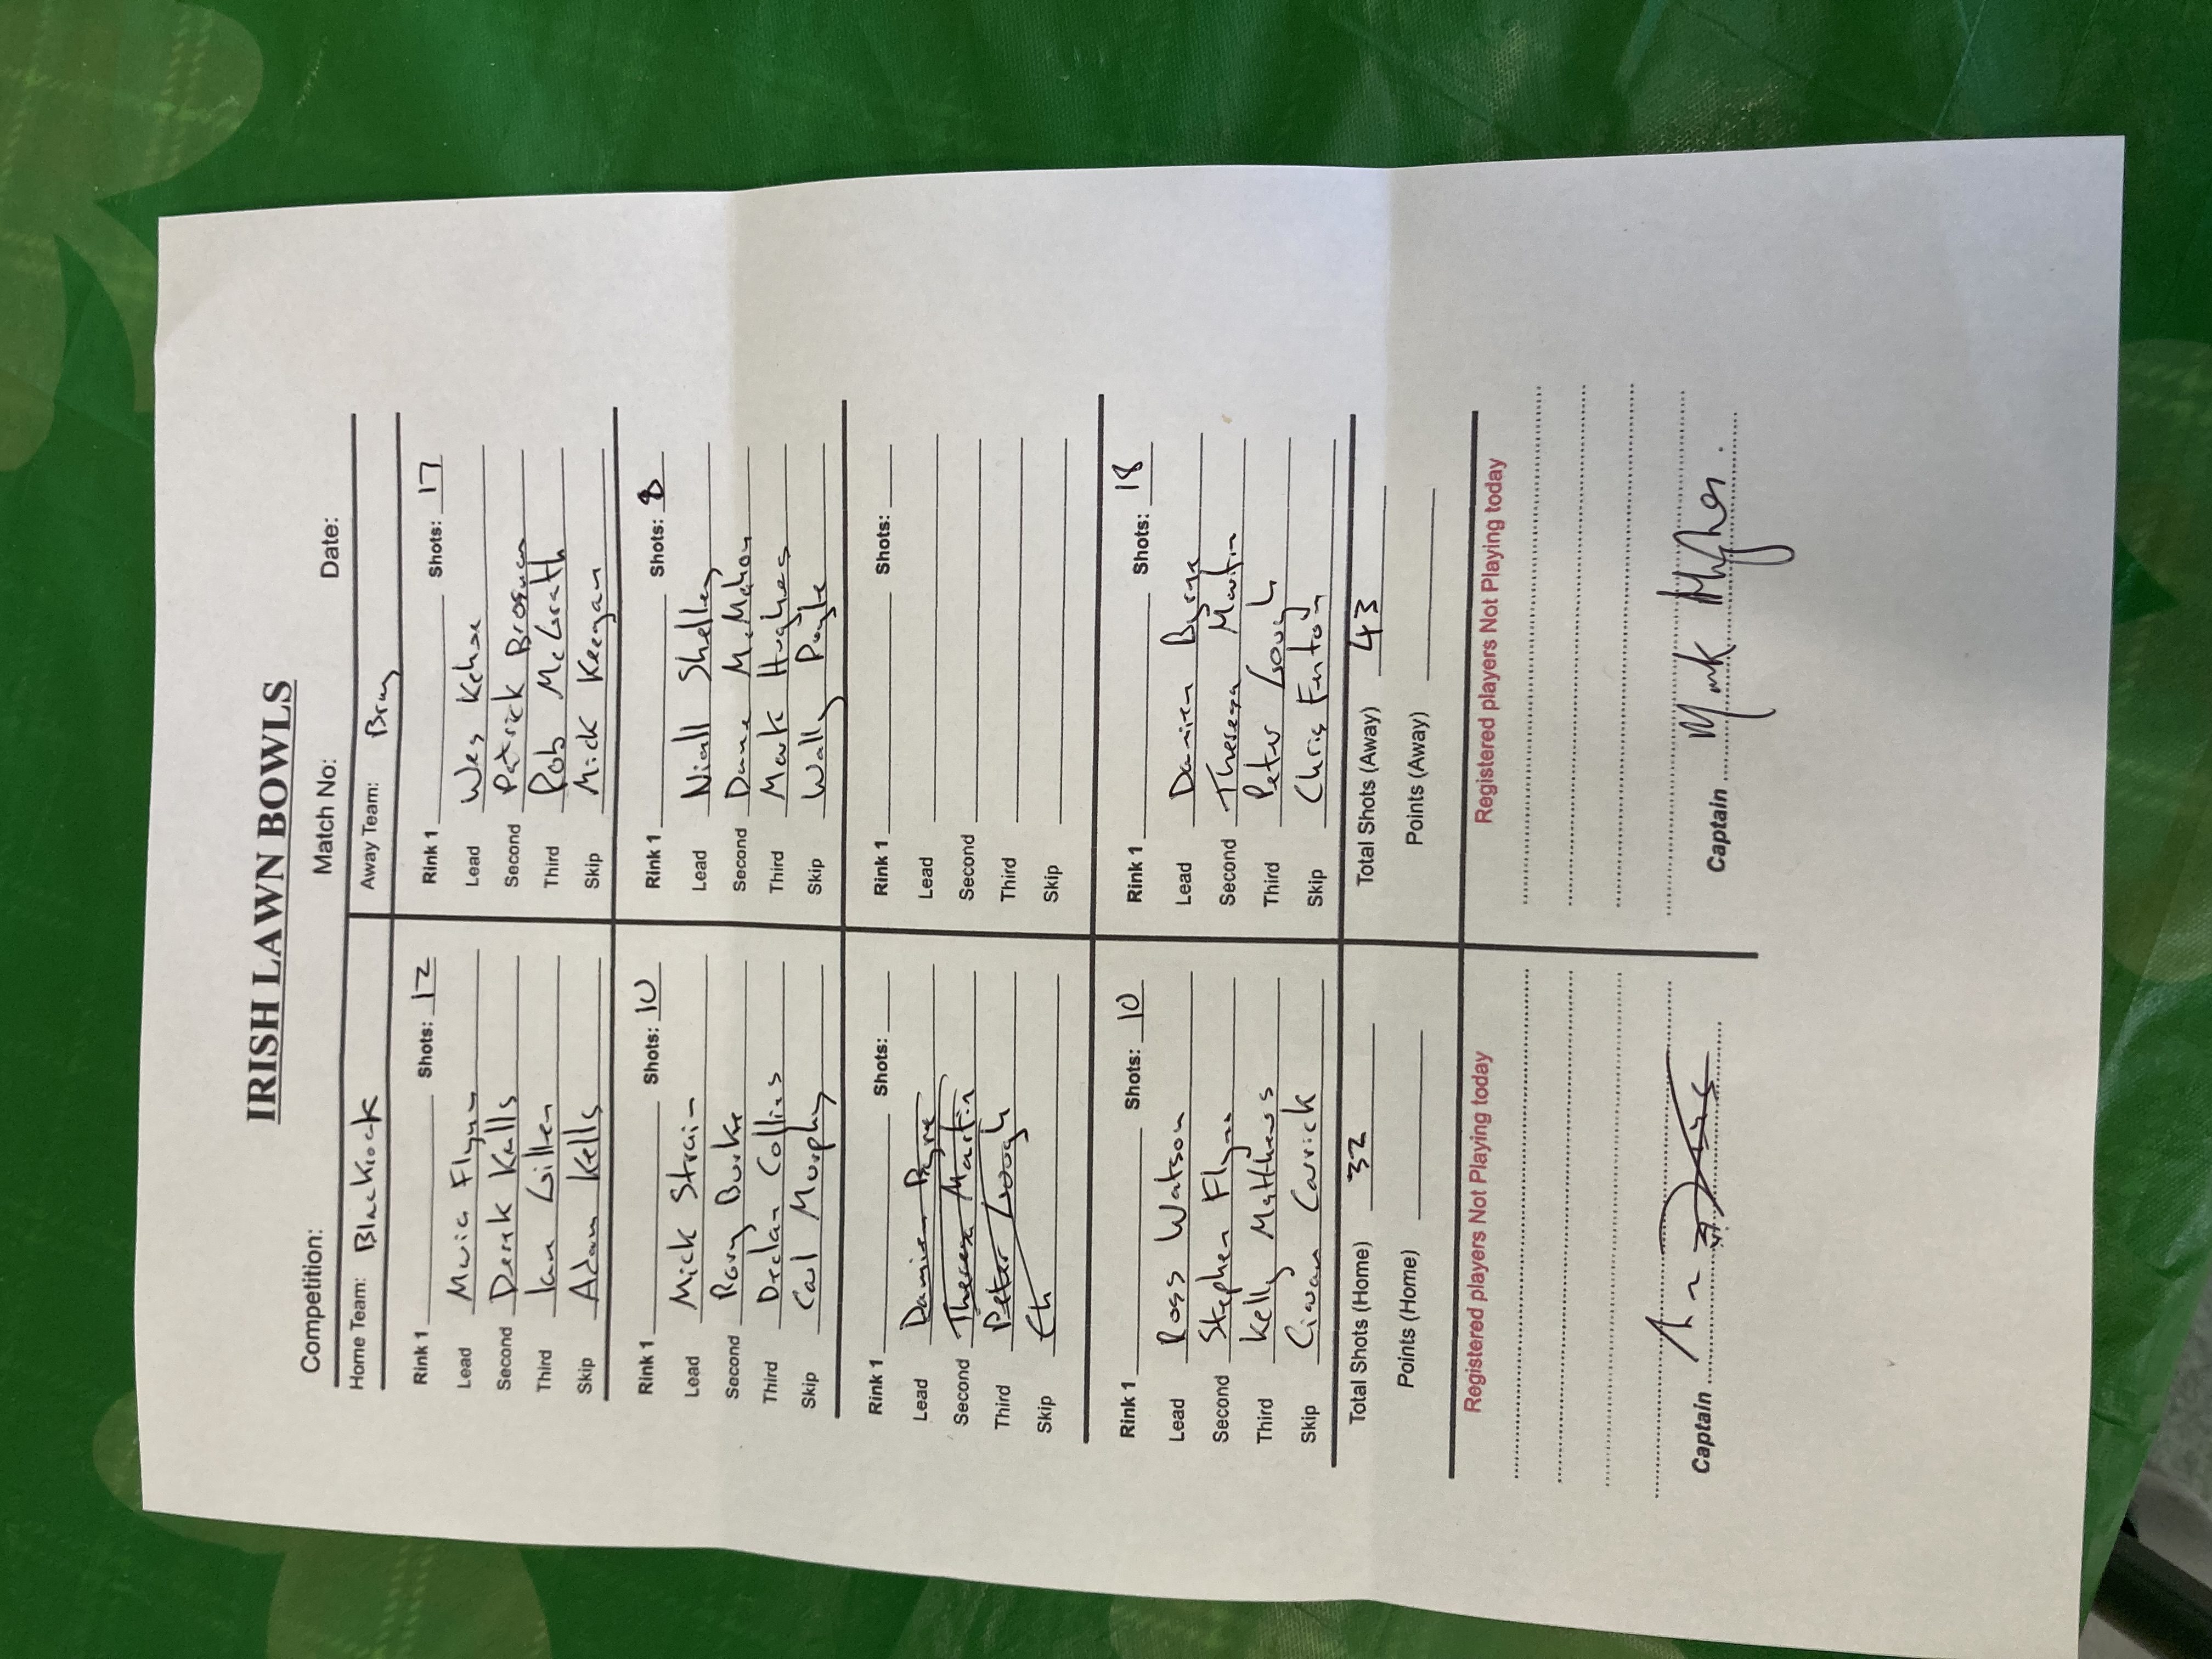 IRISH LAWN BOWLS
Competition: Match No: Date:
Home Team: Blackrock Away Team: Bray
Rink 1 Shots: 12 Rink 1 Shots: 17
Lead Muric Flynn Lead Wes Kehoe
Second Derek Kells Second Patrick Brosnan
Third Ian Gillen Third Rob McGrath
Skip Adam Kells Skip Mick Keegan
Rink 1 Shots: 10 Rink 1 Shots: 8
Lead Mick Strain Lead Niall Shelley
Second Rory Burke Second McMahon
Third Declan Collins Third Mark Hughes
Skip Carl Murphy Skip Wally Payle
Rink 1 Shots: Rink 1 Shots:
Lead Damien Byrne Lead
Second Theresa Martin Second
Third Peter Gough Third
Skip Ch Skip
Rink 1 Shots: 10 Rink 1 Shots: 18
Lead Ross Watson Lead Damien Byrne
Second Stephen Flynn Second Theresa Martin
Third Kelly Matthews Third Peter Gough
Skip Carrick Skip Chris Fenton
Total Shots (Home) 32 Total Shots (Away) 43
Points (Home) Points (Away)
Registered players Not Playing today Registered players Not Playing today
Captain Captain Mark Hughes